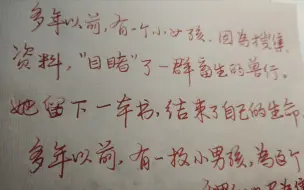 多年以前，有一个小女孩，因为搜集
资料，"目睹"了一群畜生的兽行。
她留下一本书，结束了自己的生命
多年以前，有一小男孩，为这个